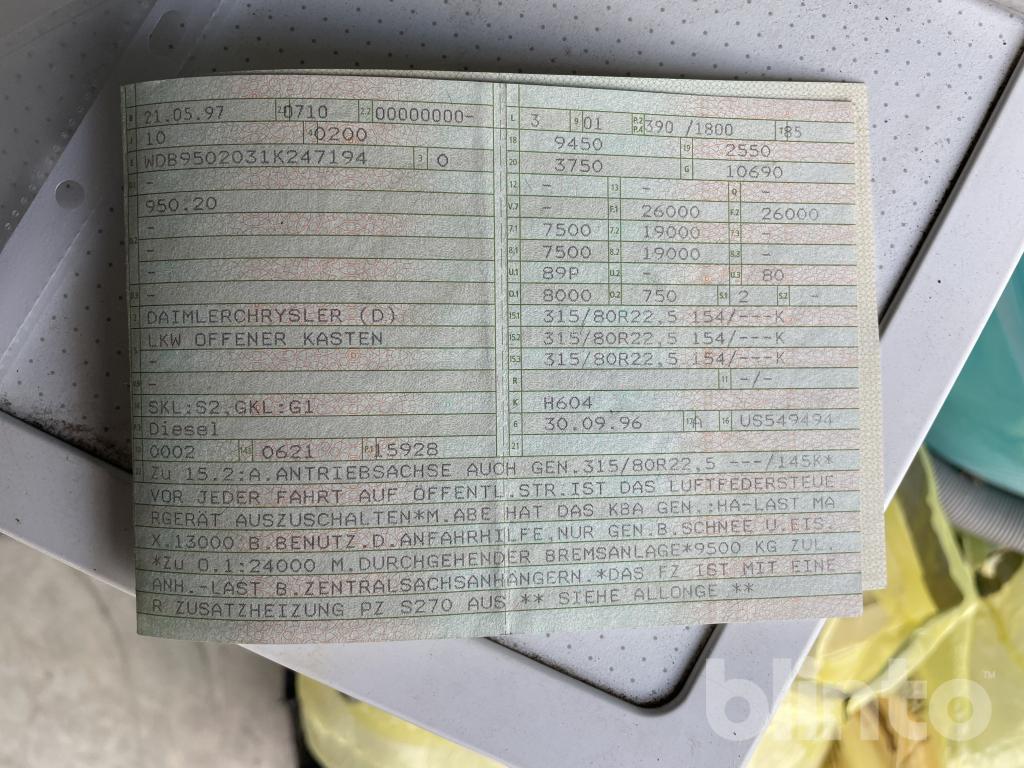 B 21.05.97 2.1 0710 2.2 00000000-
J 10 4 0200
E WDB9502031K247194 3 0
-
950.20
-
-
-
-
2 DAIMLERCHRYSLER (D)
5 LKW OFFENER KASTEN
-
V.9 -
14 SKL:S2,GKL:G1
P.3 Diesel
0002 14.1 0621 P.1 15928
L 3 9 01 P.2 P.4 390 /1800 T 85
18 9450 19 2550
20 3750 G 10690
12 - 13 - Q -
V.7 - F.1 26000 F.2 26000
7.1 7500 7.2 19000 7.3 -
8.1 7500 8.2 19000 8.3 -
U.1 89P U.2 - U.3 80
O.1 8000 O.2 750 S.1 2 S.2 -
15.1 315/80R22,5 154/---K
15.2 315/80R22,5 154/---K
15.3 315/80R22,5 154/---K
R 11 -/-
K H604
6 30.09.96 17 A 16 US549494
21
Zu 15.2:A.ANTRIEBSACHSE AUCH GEN.315/80R22,5 ---/145K*
VOR JEDER FAHRT AUF ÖFFENTL.STR.IST DAS LUFTFEDERSTEUE
RGERÄT AUSZUSCHALTEN*M.ABE HAT DAS KBA GEN.:HA-LAST MA
X.13000 B.BENUTZ.D.ANFAHRHILFE,NUR GEN.B.SCHNEE U.EIS.
*Zu O.1:24000 M.DURCHGEHENDER BREMSANLAGE*9500 KG ZUL.
ANH.-LAST B.ZENTRALSACHSANHÄNGERN.*DAS FZ IST MIT EINE
R ZUSATZHEIZUNG PZ S270 AUS ** SIEHE ALLONGE **
blinto™